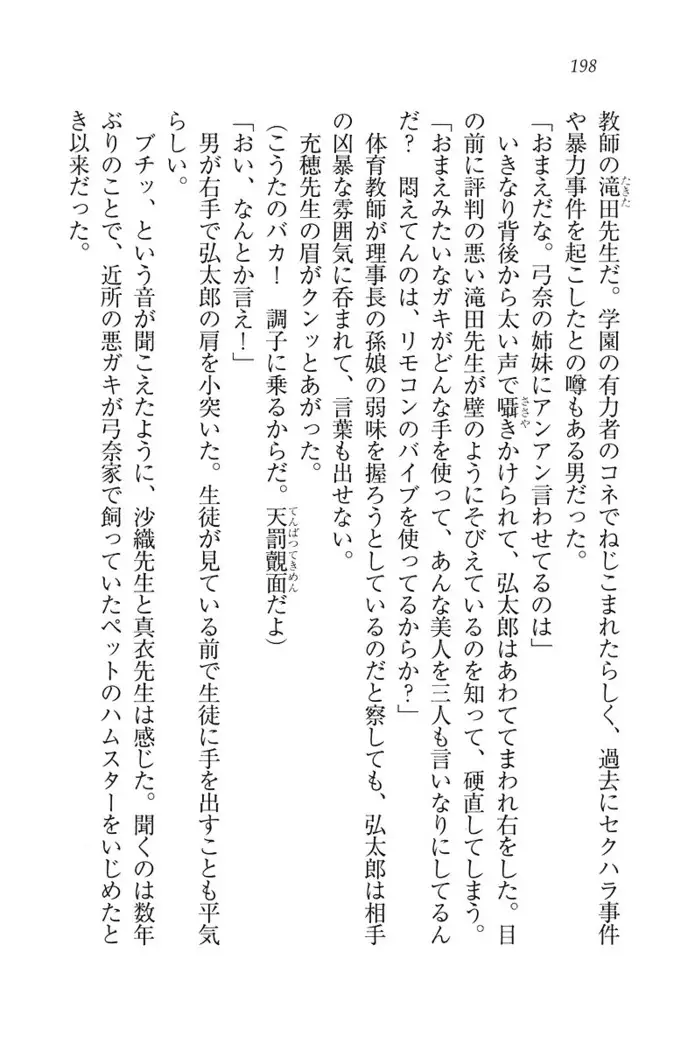 198
教師の滝田先生だ。学園の有力者のコネでねじこまれたらしく、過去にセクハラ事件
や暴力事件を起こしたとの噂もある男だった。
「おまえだな。弓奈の姉妹にアンアン言わせてるのは」
いきなり背後から太い声で囁きかけられて、弘太郎はあわててまわれ右をした。目
の前に評判の悪い滝田先生が壁のようにそびえているのを知って、硬直してしまう。
「おまえみたいなガキがどんな手を使って、あんな美人を三人も言いなりにしてるん
だ?　悶えてんのは、リモコンのバイブを使ってるからか?」
体育教師が理事長の孫娘の弱味を握ろうとしているのだと察しても、弘太郎は相手
の凶暴な雰囲気に呑まれて、言葉も出せない。
充穂先生の眉がクンッとあがった。
(こうたのバカ!　調子に乗るからだ。天罰覿面だよ)
「おい、なんとか言え!」
男が右手で弘太郎の肩を小突いた。生徒が見ている前で生徒に手を出すことも平気
らしい。
ブチッ、という音が聞こえたように、沙織先生と真衣先生は感じた。聞くのは数年
ぶりのことで、近所の悪ガキが弓奈家で飼っていたペットのハムスターをいじめたと
き以来だった。